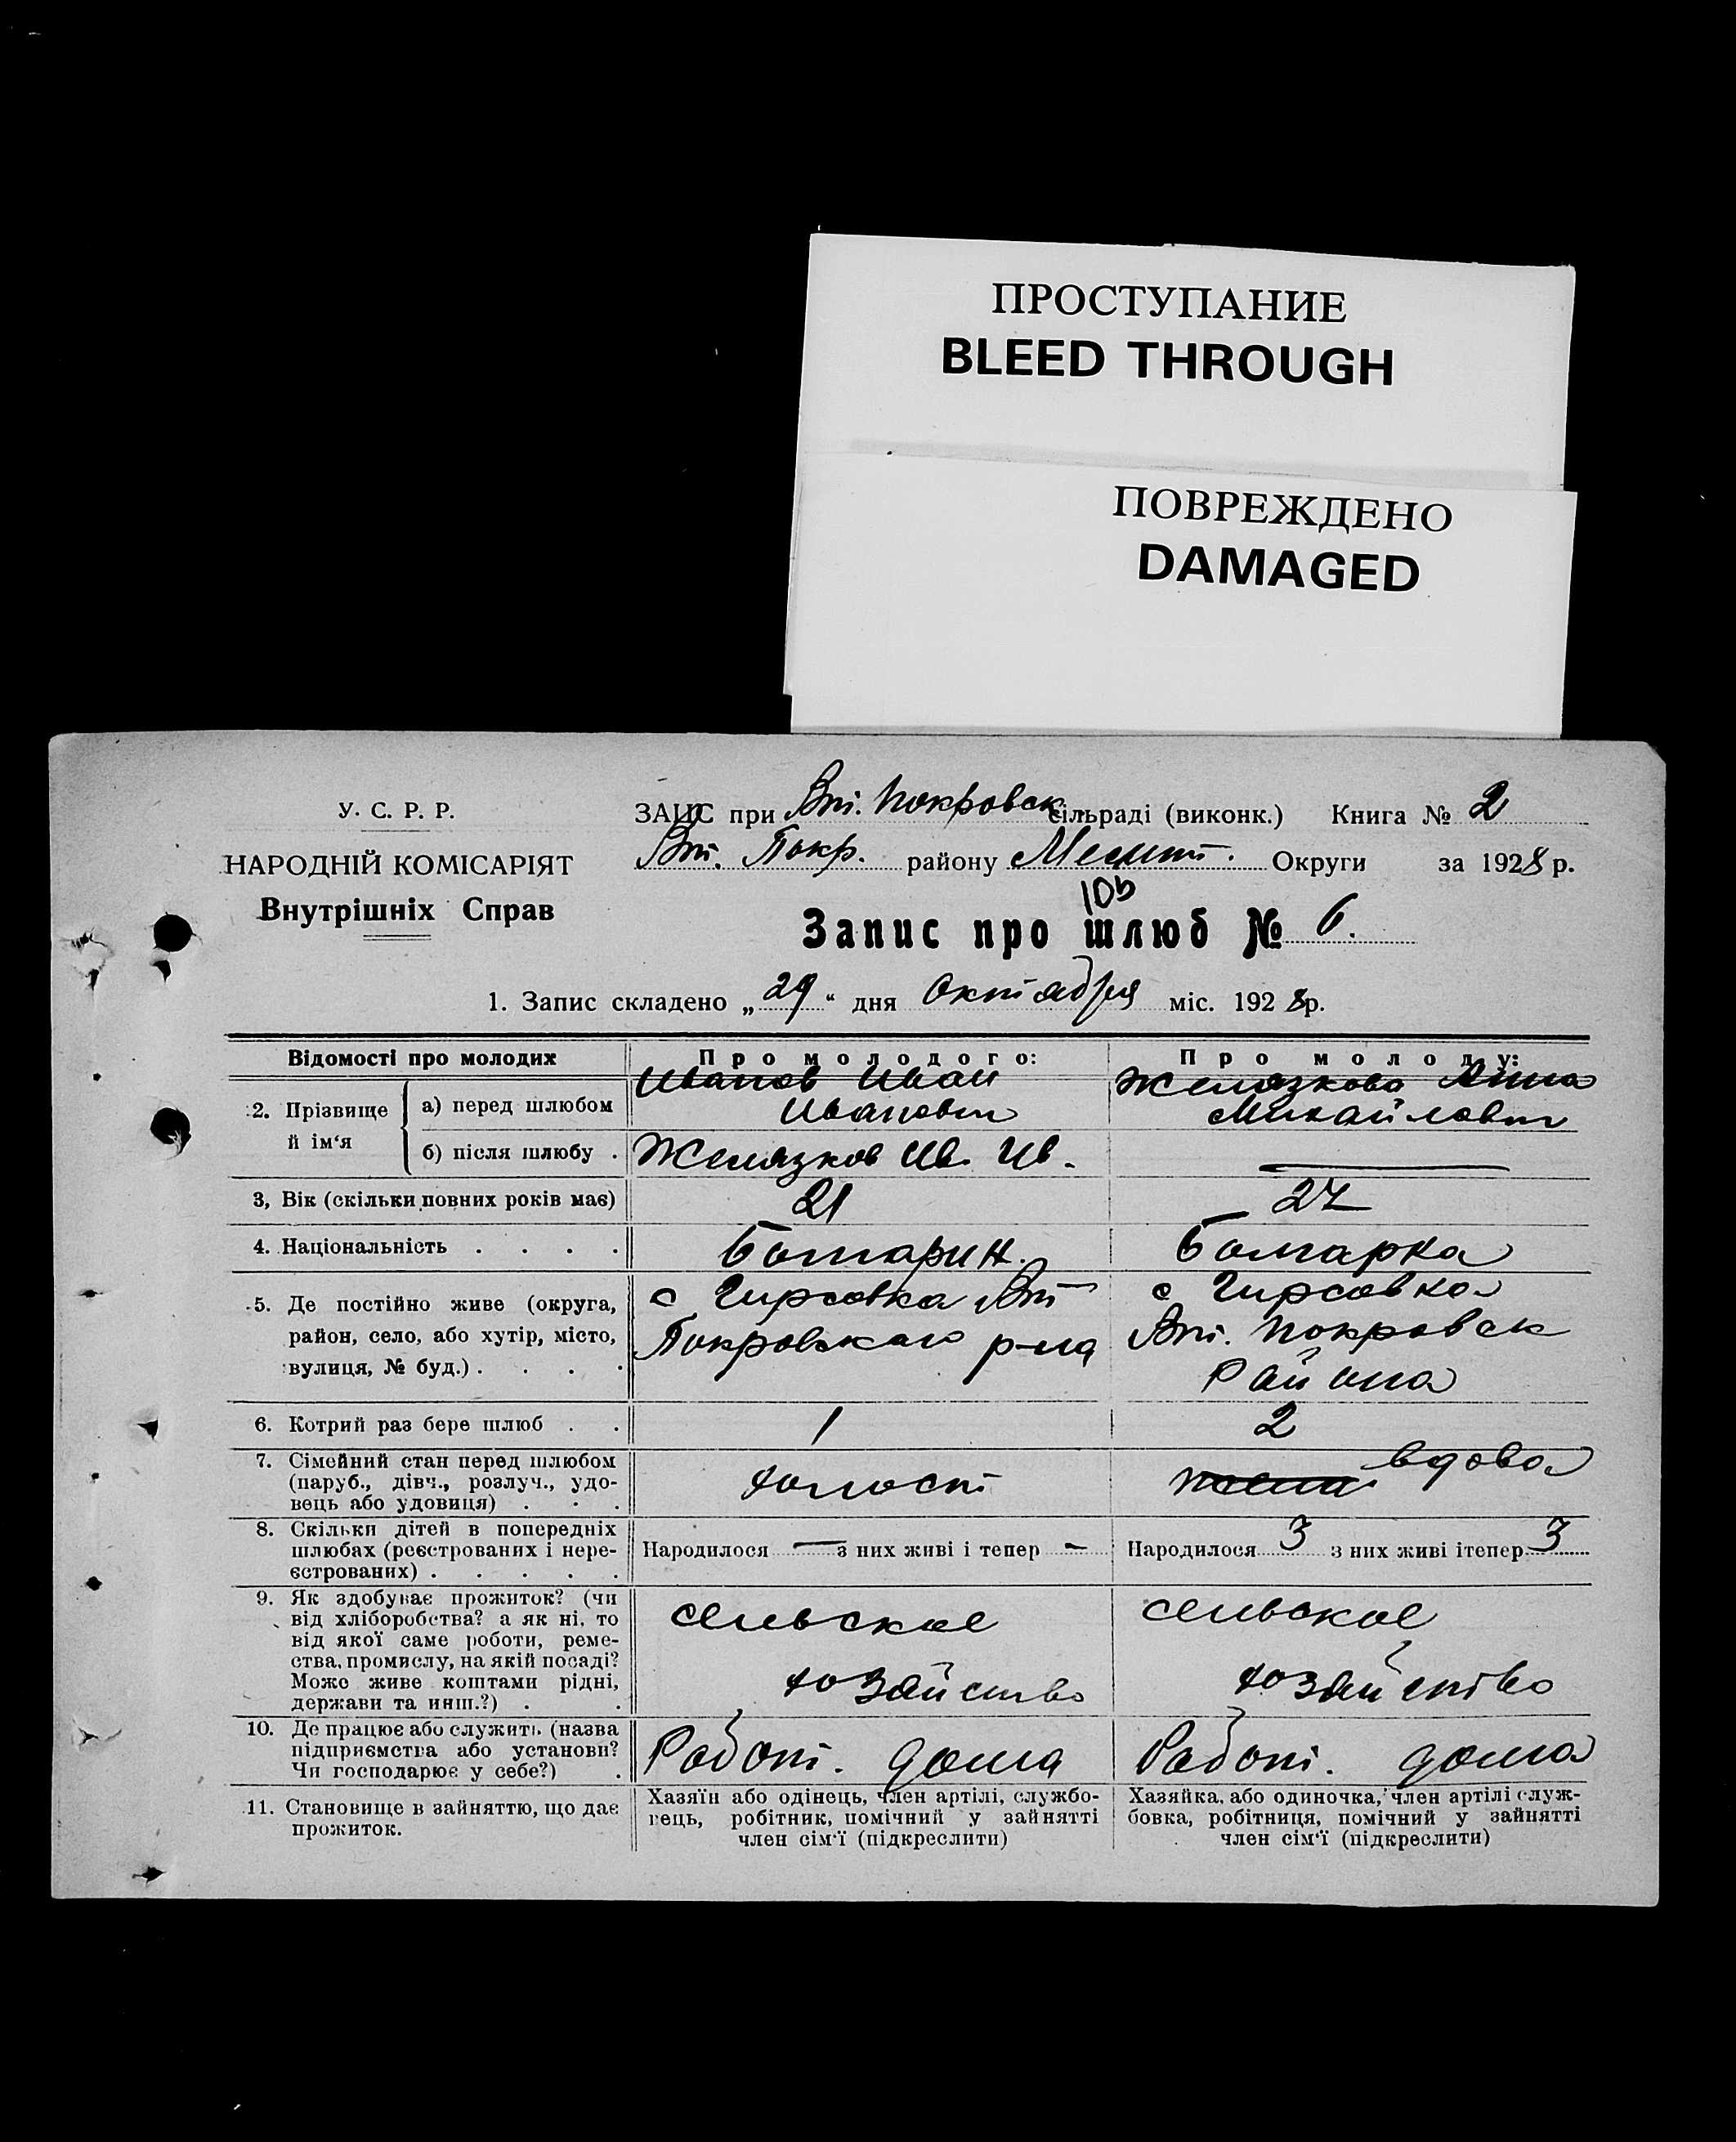 ПРОСТУПАНИЕ
BLEED THROUGH
ПОВРЕЖДЕНО
DAMAGED
У. С. Р. Р.
НАРОДНІЙ КОМІСАРІЯТ
Внутрішніх Справ
ЗАГС при Вт. Покровск. сільраді (виконк.) Книга № 2
Вт. Покр. району Мелит. Округи за 1928 р.
Запис про шлюб № 6.
1. Запис складено „29“ дня Октября міс. 1928 р.
Відомості про молодих
Про молодого:
Про молоду:
2. Прізвище й ім‘я
а) перед шлюбом
Иванов Иван
Иванович
Желязкова Анна
Михайловн
б) після шлюбу .
Желязков Ив. Ив.
—
3, Вік (скільки повних років має)
21
27
4. Національність . . . .
Болгарин.
Болгарка
5. Де постійно живе (округа,
район, село, або хутір, місто,
вулиця, № буд.) . . . .
с Гирсовка Вт
Покровскаго р-на
с Гирсовка
Вт. Покровск
Района
6. Котрий раз бере шлюб . .
1
2
7. Сімейний стан перед шлюбом
(паруб., дівч., розлуч., удо-
вець або удовиця) . . .
холост
жена вдова
8. Скільки дітей в попередніх
шлюбах (реєстрованих і нере-
єстрованих) . . . . .
Народилося — з них живі і тепер -
Народилося 3 з них живі ітепер 3
9. Як здобуває прожиток? (чи
від хліборобства? а як ні, то
від якої саме роботи, реме-
ства, промислу, на якій посаді?
Може живе коштами рідні,
держави та инш.?) . .
сельское
хозяйство
сельское
хозяйство
10. Де працює або служить (назва
підприємства або установи?
Чи господарює у себе?) .
Работ. дома
Работ. дома
11. Становище в зайняттю, що дає
прожиток.
Хазяїн або одінець, член артілі, службо-
вець, робітник, помічний у зайнятті
член сім‘ї (підкреслити)
Хазяйка, або одиночка, член артілі служ-
бовка, робітниця, помічний у зайнятті
член сім‘ї (підкреслити)